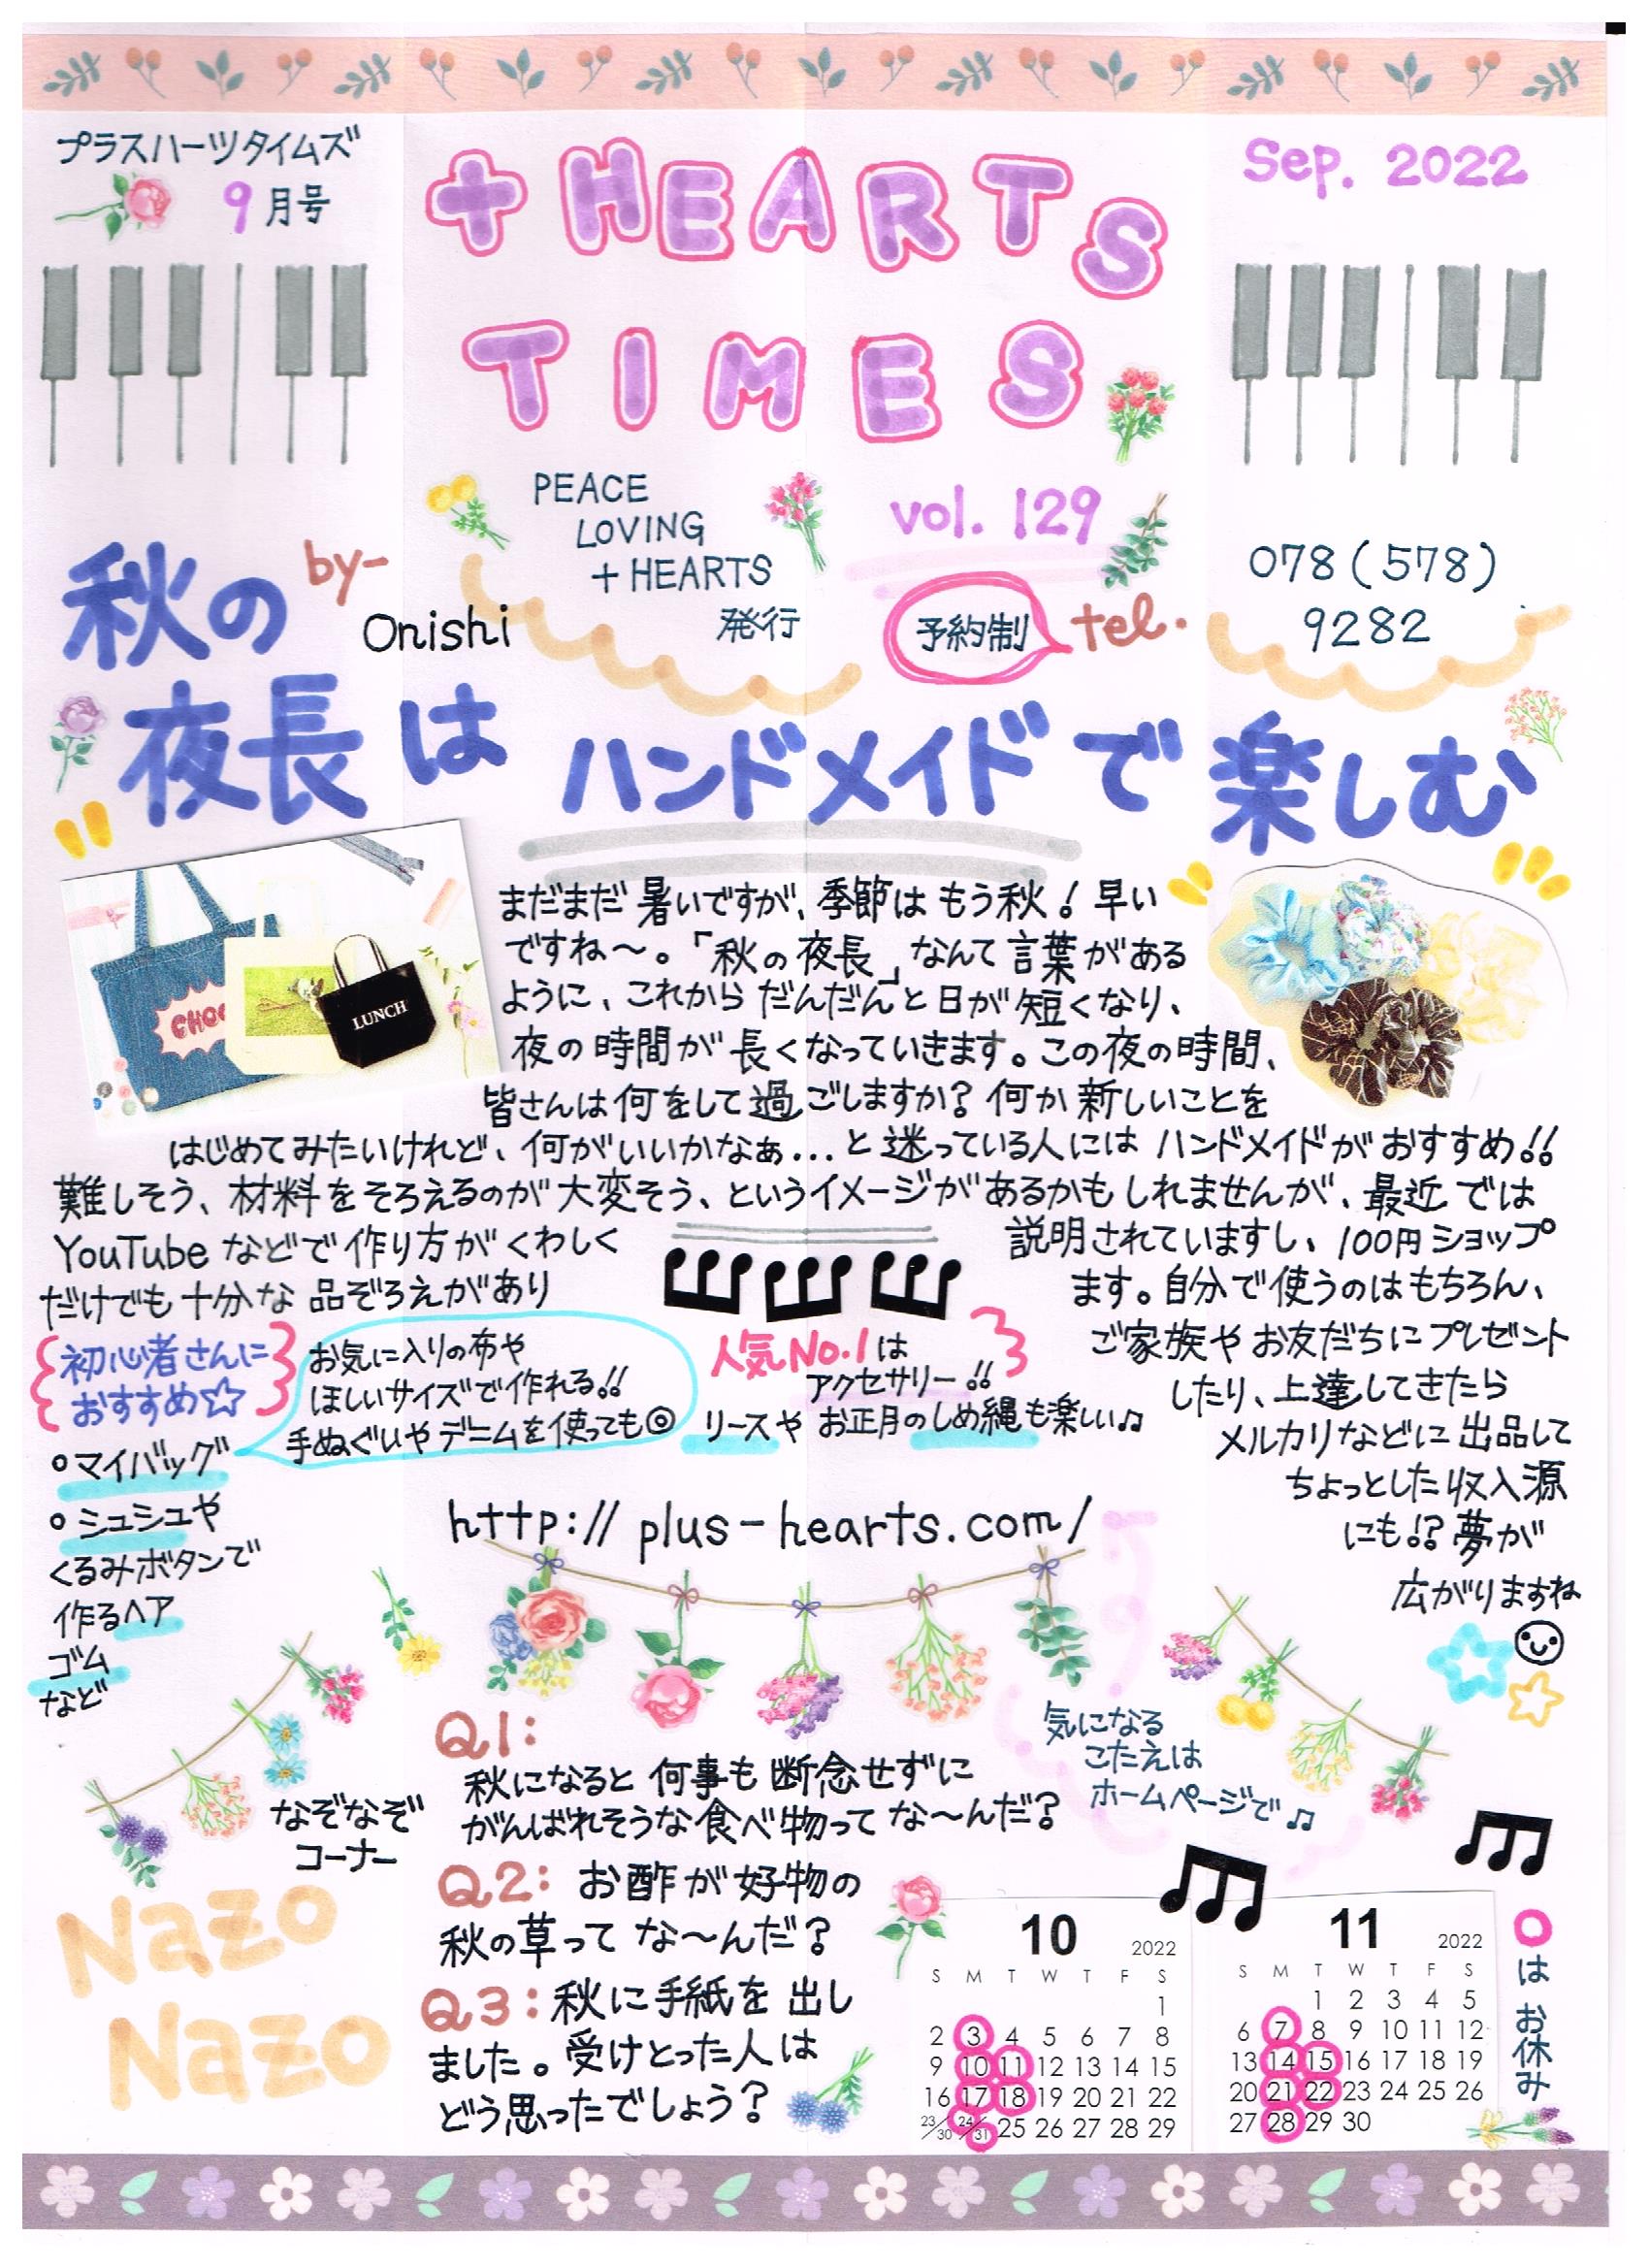 プラスハーツタイムズ
9月号
+HEARTS
TIMES
Sep. 2022
PEACE
LOVING
+HEARTS
発行
vol. 129
予約制
tel.
078(578)
9282
by-
Onishi
秋の
夜長は ハンドメイドで楽しむ
CHOC
LUNCH
まだまだ暑いですが、季節はもう秋!早い
ですね〜。「秋の夜長」なんて言葉がある
ように、これからだんだんと日が短くなり、
夜の時間が長くなっていきます。この夜の時間、
皆さんは何をして過ごしますか?何か新しいことを
はじめてみたいけれど、何がいいかなぁ...と迷っている人にはハンドメイドがおすすめ!!
難しそう、材料をそろえるのが大変そう、というイメージがあるかもしれませんが、最近では
YouTubeなどで作り方がくわしく 説明されていますし、100円ショップ
だけでも十分な品ぞろえがあり ます。自分で使うのはもちろん、
ご家族やお友だちにプレゼント
したり、上達してきたら
メルカリなどに出品して
ちょっとした収入源
にも!?夢が
広がりますね
初心者さんに
おすすめ☆
お気に入りの布や
ほしいサイズで作れる!!
手ぬぐいやデニムを使っても◎
人気No.1は
アクセサリー!!
リースやお正月のしめ縄も楽しい♫
○マイバッグ
○シュシュや
くるみボタンで
作るヘア
ゴム
など
http://plus-hearts.com/
なぞなぞ
コーナー
Nazo
Nazo
Q1:
秋になると何事も断念せずに
がんばれそうな食べ物ってな〜んだ?
気になる
こたえは
ホームページで♫
Q2: お酢が好物の
秋の草ってな〜んだ?
Q3:秋に手紙を出し
ました。受けとった人は
どう思ったでしょう?
10 2022
S M T W T F S
1
2 3 4 5 6 7 8
9 10 11 12 13 14 15
16 17 18 19 20 21 22
23/30 24/31 25 26 27 28 29
11 2022
S M T W T F S
1 2 3 4 5
6 7 8 9 10 11 12
13 14 15 16 17 18 19
20 21 22 23 24 25 26
27 28 29 30
○はお休み